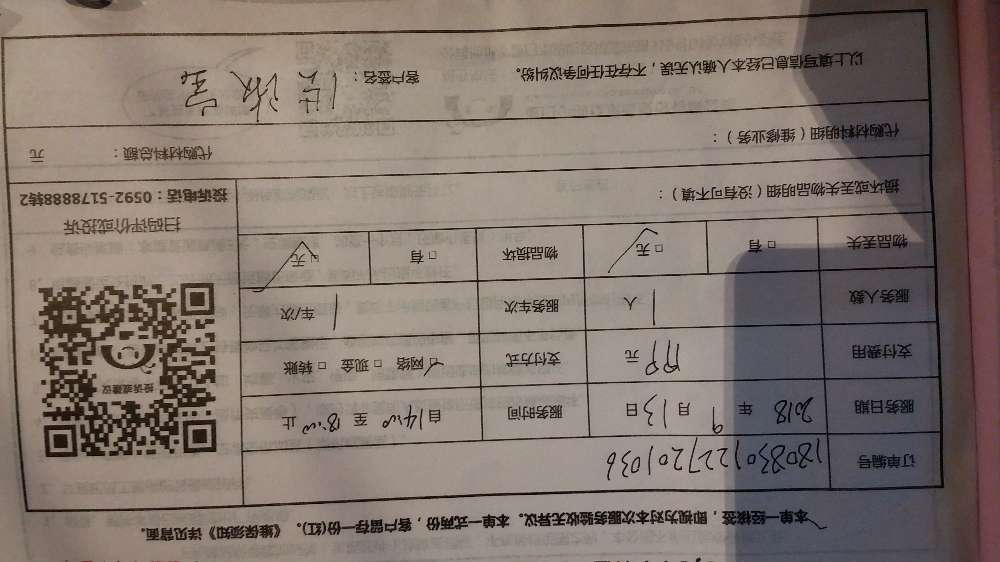 本单一经核签，即视为对本次服务验收无异议。本单一式两份，客户留存一份(红)。《维保须知》详见背面。
订单编号 1808301227201036
服务日期 2018 年 9 月 13 日 服务时间 自 14:00 至 18:00 止
支付费用 元 支付方式 ☑ 网络 □ 现金 □ 转账
服务人数 1 人 服务车次 1 车/次
物品丢失 □ 有 □ 无 物品损坏 □ 有 □ 无
投诉或建议
扫码评价或投诉
投诉电话：0592-5178888转2
损坏或丢失物品明细（没有可不填）：
代购材料明细（维修业务）： 代购材料总额： 元
以上填写信息已经本人确认无误，不存在任何争议纠纷。 客户签名：